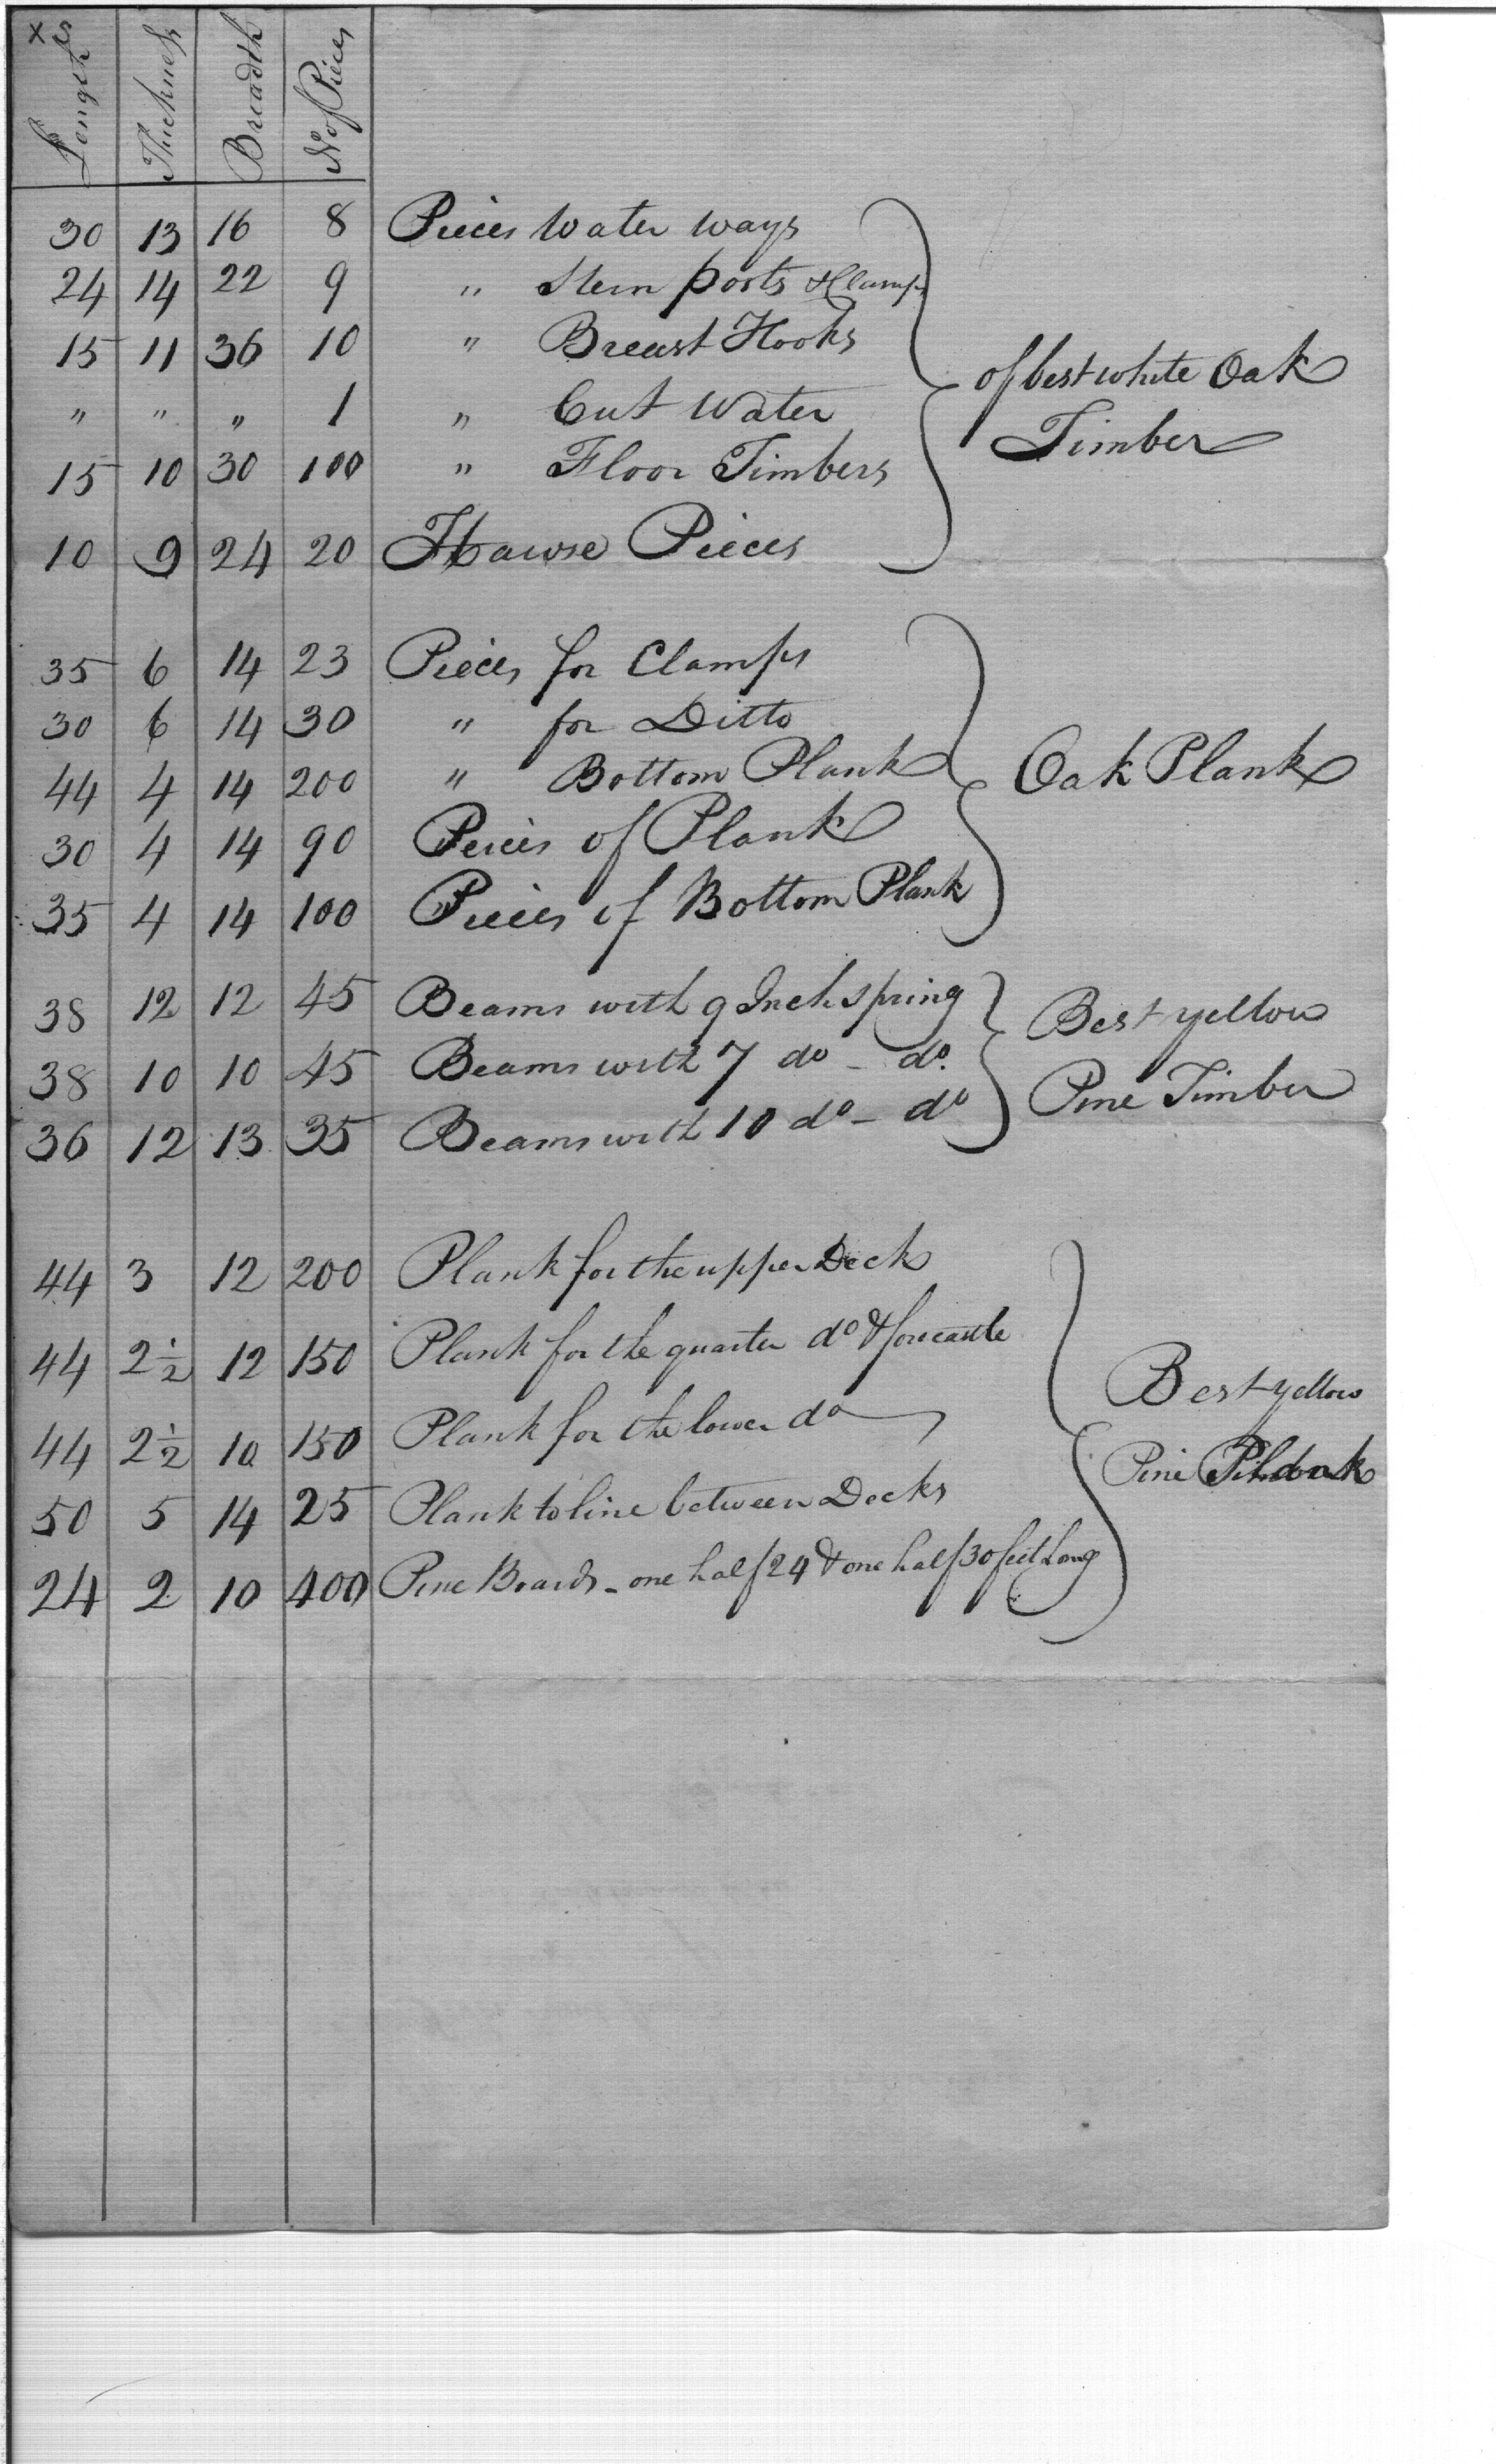 x
Lengths Thickness Breadth No of Pieces
30 13 16 8 Pieces Water ways
24 14 22 9 " Stern posts & Clamps
15 11 36 10 " Breast Hooks
" " " 1 " Cut Water
15 10 30 100 " Floor Timbers
10 9 24 20 Hawse Pieces
of best white Oak
Timber
35 6 14 23 Pieces for Clamps
30 6 14 30 " for Ditto
44 4 14 200 " Bottom Plank
30 4 14 90 Peices of Plank
35 4 14 100 Pieces of Bottom Plank
Oak Plank
38 12 12 45 Beams with 9 Inch spring
38 10 10 45 Beams with 7 do - do.
36 12 13 35 Beams with 10 do - do
Best yellow
Pine Timber
44 3 12 200 Plank for the upper Deck
44 2 1/2 12 150 Plank for the quarter do & forecastle
44 2 1/2 10 150 Plank for the lower do
50 5 14 25 Plank to line between Decks
24 2 10 400 Pine Boards - one half 24 & one half 30 feet Long
Best yellow
Pine